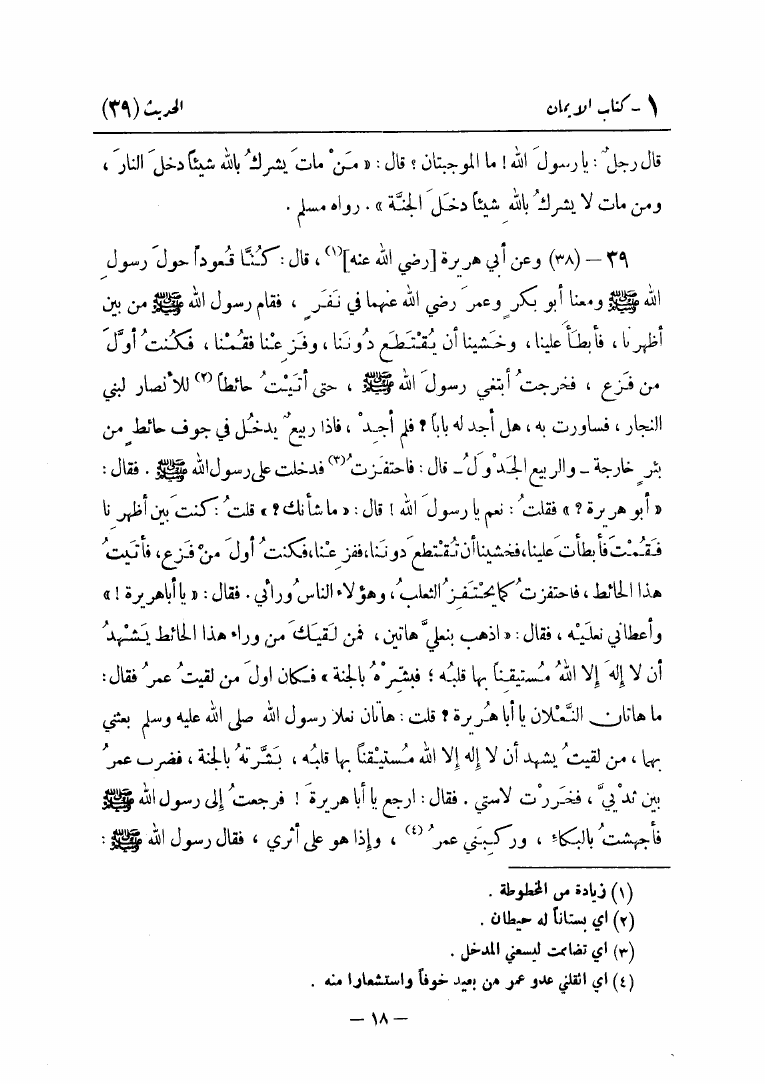 ١ - كتاب الايمان الحديث (٣٩)
قال رجلٌ : يا رسولَ الله ! ما الموجبتان ؟ قال : « مَنْ ماتَ يشركُ بالله شيئاً دخلَ النارَ ،
ومن مات لا يشركُ بالله شيئاً دخلَ الجنَّة » . رواه مسلم .
٣٩ – (٣٨) وعن أبي هريرة [رضي الله عنه](١) ، قال : كُنَّا قُعوداً حولَ رسولِ
الله ﷺ ومعنا أبو بكرٍ وعمرَ رضي الله عنهما في نَفَرٍ ، فقام رسول الله ﷺ من بين
أظهرنا ، فأبطَأَ علينا ، وخَشينا أن يُقْتَطَعَ دُونَنا ، وفَزِعْنا فقُمْنا ، فكُنتُ أوَّلَ
من فَزِع ، فخرجتُ أبتغي رسولَ الله ﷺ ، حتى أتَيْتُ حائطاً (٢) للأنصار لبني
النجار ، فساورت به ، هل أجد له باباً ؟ فلم أجِدْ ، فاذا ربيعٌ يدخُل في جوف حائطٍ من
بئرٍ خارجة - والربيع الجَدْوَلُ - قال : فاحتفزتُ (٣) فدخلت على رسول الله ﷺ . فقال :
« أبو هريرة ؟ » فقلتُ : نعم يا رسولَ الله ! قال : « ما شأنك ؟ » قلتُ : كنتَ بين أظهرِنا
فقُمْتَ فأبطأتَ علينا ، فخشينا أن تُقْتطعَ دونَنا ، ففزِعْنا ، فكنتُ أولَ منْ فزِع ، فأتيتُ
هذا الحائط ، فاحتفزتُ كما يحْتَفِزُ الثعلبُ ، وهؤلاء الناسُ ورائي . فقال : « يا أبا هريرة ! »
وأعطاني نعلَيْه ، فقال : « اذهب بنعليَّ هاتين ، فمن لقيَكَ من وراء هذا الحائط يَشْهدُ
أن لا إلهَ إلا اللهُ مُستيقِناً بها قلبُه ؛ فبشِّرْهُ بالجنة » فكان اول من لقيتُ عمرُ فقال :
ما هاتان النَّعْلان يا أبا هُريرة ؟ قلت : هاتان نعلا رسول الله صلى الله عليه وسلم بعثني
بهما ، من لقيتُ يشهد أن لا إله إلا الله مُستيْقناً بها قلبُه ، بَشَّرتهُ بالجنة ، فضرب عمرُ
بين ثدْييَّ ، فخَررْت لاستي . فقال : ارجع يا أبا هريرةَ ! فرجعتُ إلى رسول الله ﷺ
فأجهشتُ بالبكاءِ ، وركِبَني عمرُ (٤) ، وإذا هو على أثري ، فقال رسول الله ﷺ :
(١) زيادة من المخطوطة .
(٢) اي بستاناً له حيطان .
(٣) اي تضاممت ليسعني المدخل .
(٤) اي اثقلني عدو عمر من بعيد خوفاً واستشعارا منه .
– ١٨ –